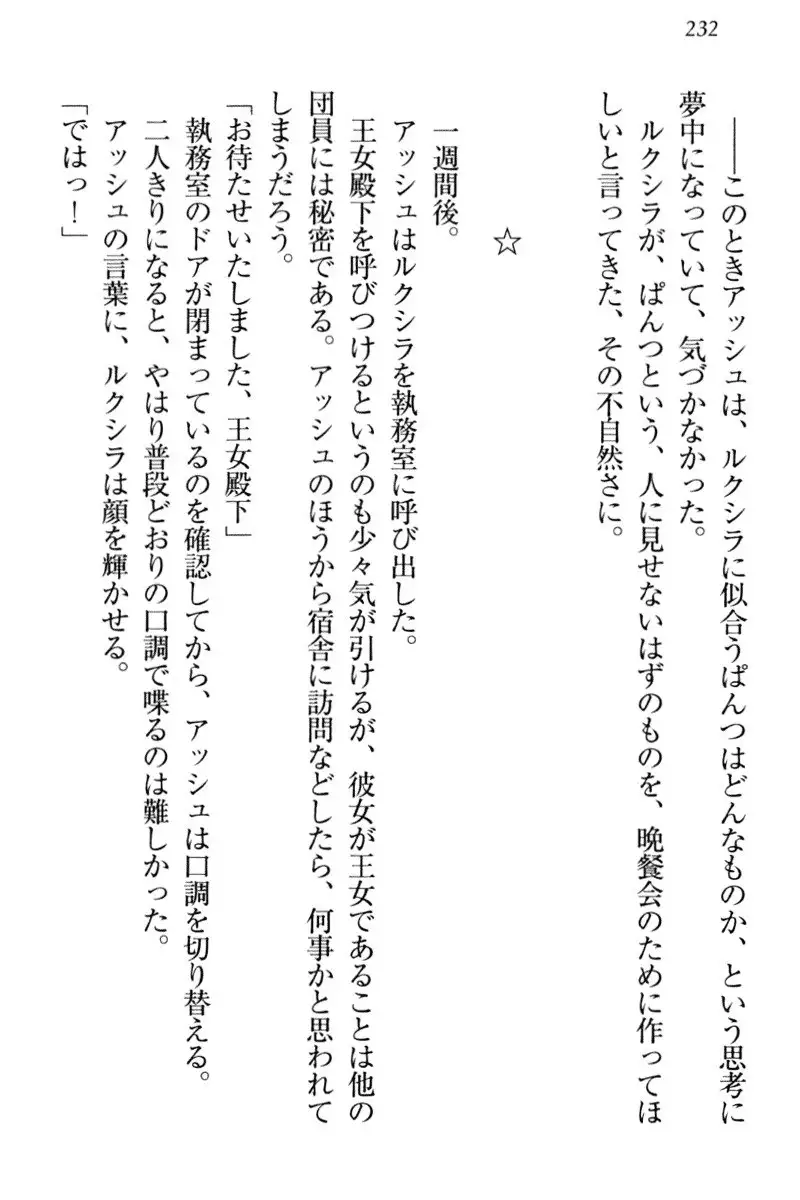 232
――このときアッシュは、ルクシラに似合うぱんつはどんなものか、という思考に
夢中になっていて、気づかなかった。
ルクシラが、ぱんつという、人に見せないはずのものを、晩餐会のために作ってほ
しいと言ってきた、その不自然さに。
☆
一週間後。
アッシュはルクシラを執務室に呼び出した。
王女殿下を呼びつけるというのも少々気が引けるが、彼女が王女であることは他の
団員には秘密である。アッシュのほうから宿舎に訪問などしたら、何事かと思われて
しまうだろう。
「お待たせいたしました、王女殿下」
執務室のドアが閉まっているのを確認してから、アッシュは口調を切り替える。
二人きりになると、やはり普段どおりの口調で喋るのは難しかった。
アッシュの言葉に、ルクシラは顔を輝かせる。
「ではっ！」